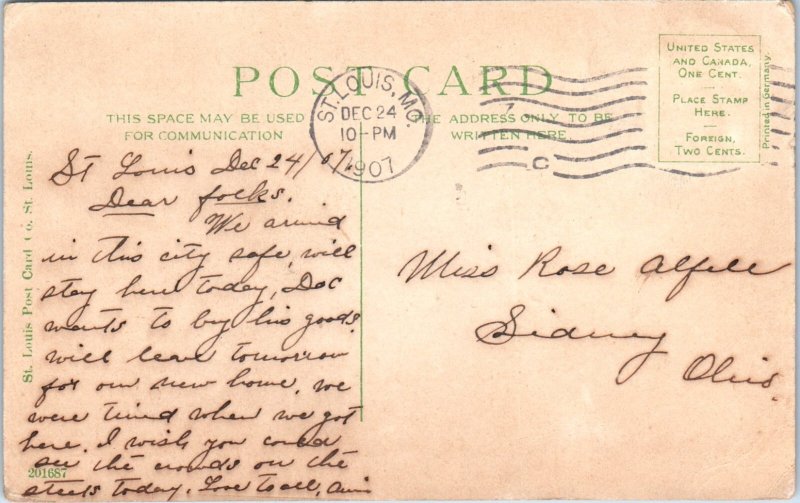 POST CARD
THIS SPACE MAY BE USED
FOR COMMUNICATION
THE ADDRESS ONLY TO BE
WRITTEN HERE
ST. LOUIS, MO.
DEC 24
10-PM
1907
C
UNITED STATES
AND CANADA,
ONE CENT.
PLACE STAMP
HERE.
FOREIGN,
TWO CENTS.
Printed in Germany.
St. Louis Post Card Co. St. Louis.
St Louis Dec 24/07.
Dear folks.
We arrived
in this city safe, will
stay here today, Doc
wants to buy his goods.
will leave tomorrow
for our new home, we
were tired when we got
here. I wish you could
see the crowds on the
steets today. Love to all,
201687
Miss Rose Alfele
Sidney
Ohio.